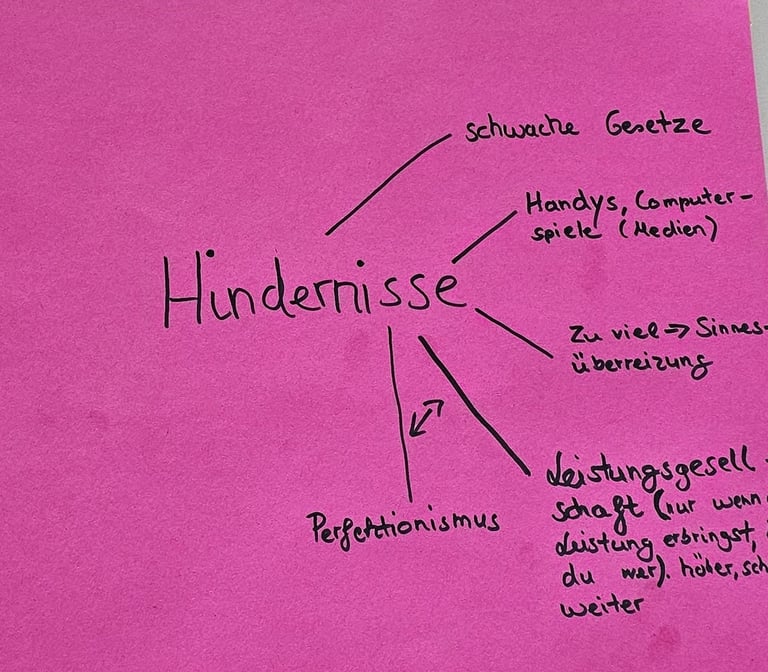 schwache Gesetze
Handys, Computer-
spiele (Medien)
Hindernisse
Zu viel => Sinnes-
überreizung
Leistungsgesell-
schaft (nur wenn
Leistung erbringst,
du wer). höher, sch
weiter
Perfektionismus